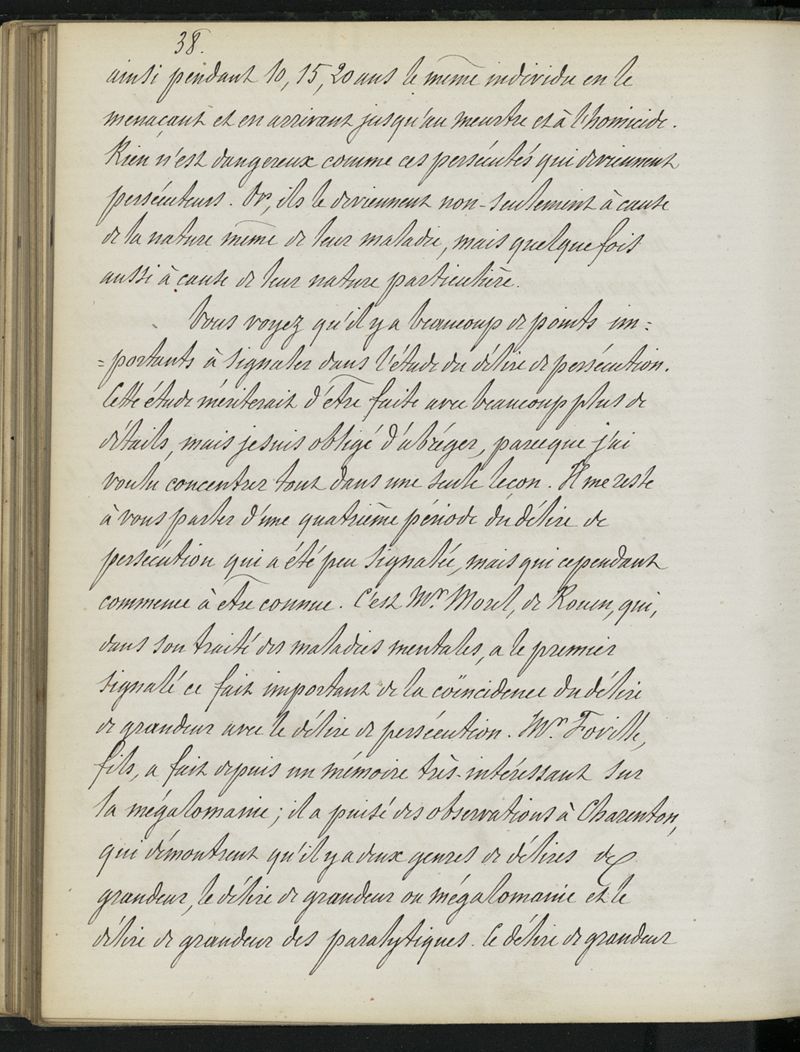 38.
ainsi pendant 10, 15, 20 ans le même individu en le
menaçant et en arrivant jusqu'au meurtre et à l'homicide.
Rien n'est dangereux comme ces persécutés qui deviennent
persécuteurs. Or, ils le deviennent non-seulement à cause
de la nature même de leur maladie, mais quelquefois
aussi à cause de leur nature particulière.
Vous voyez qu'il y a beaucoup de points im=
=portants à signaler dans l'étude du délire de persécution.
Cette étude mériterait d'être faite avec beaucoup plus de
détails, mais je suis obligé d'abréger, parceque j'ai
voulu concentrer tout dans une seule leçon. Il me reste
à vous parler d'une quatrième période du délire de
persécution qui a été peu signalée, mais qui cependant
commence à être connue. C'est Mr. Morel, de Rouen, qui,
dans son traité des maladies mentales, a le premier
signalé ce fait important de la coïncidence du délire
de grandeur avec le délire de persécution. Mr. Foville,
fils, a fait depuis un mémoire très-intéressant sur
la mégalomanie; il a puisé des observations à Charenton,
qui démontrent qu'il y a deux genres de délires de
grandeur, le délire de grandeur ou mégalomanie et le
délire de grandeur des paralytiques. Ce délire de grandeur